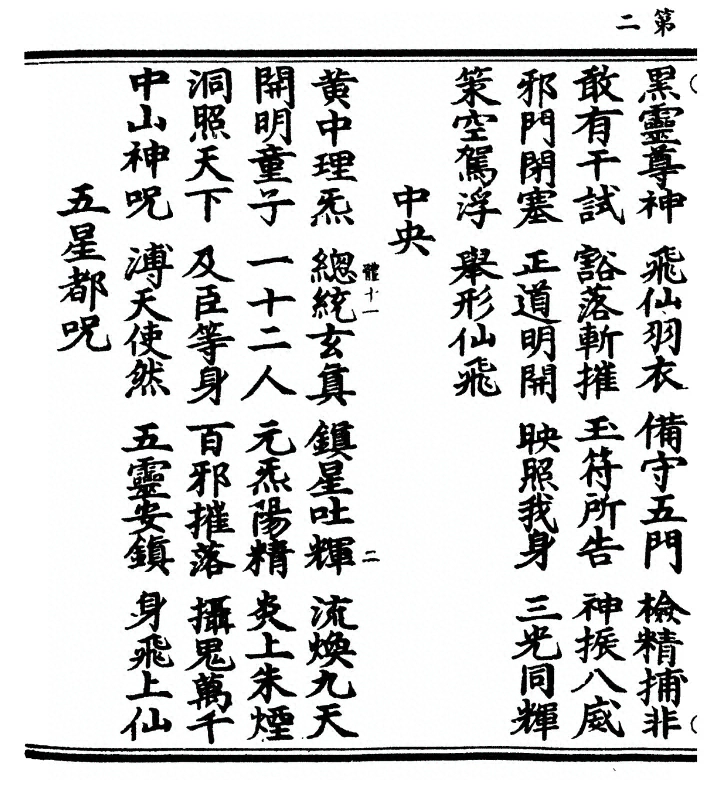 第二
黑靈尊神　飛仙羽衣　備守五門　檢精捕非
敢有干試　豁落斬摧　玉符所告　神捩八威
邪門閉塞　正道明開　映照我身　三光同輝
策空駕浮　舉形仙飛
中央
體十一　二
黃中理炁　總統玄真　鎮星吐輝　流煥九天
開明童子　一十二人　元炁陽精　炎上朱煙
洞照天下　及臣等身　百邪摧落　攝鬼萬千
中山神呪　溥天使然　五靈安鎮　身飛上仙
五星都呪